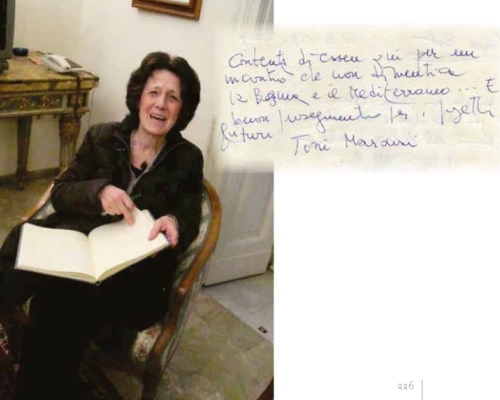 Contenta di essere qui per un
incontro che non dimentica
la Bosnia e il Mediterraneo... E
buon proseguimento per i progetti
futuri
Toni Maraini
226